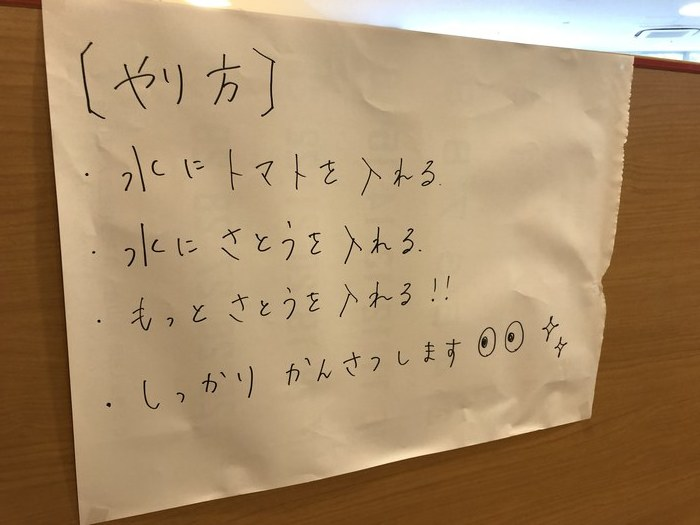 [やり方]
・水にトマトを入れる.
・水にさとうを入れる.
・もっとさとうを入れる!!
・しっかりかんさつします